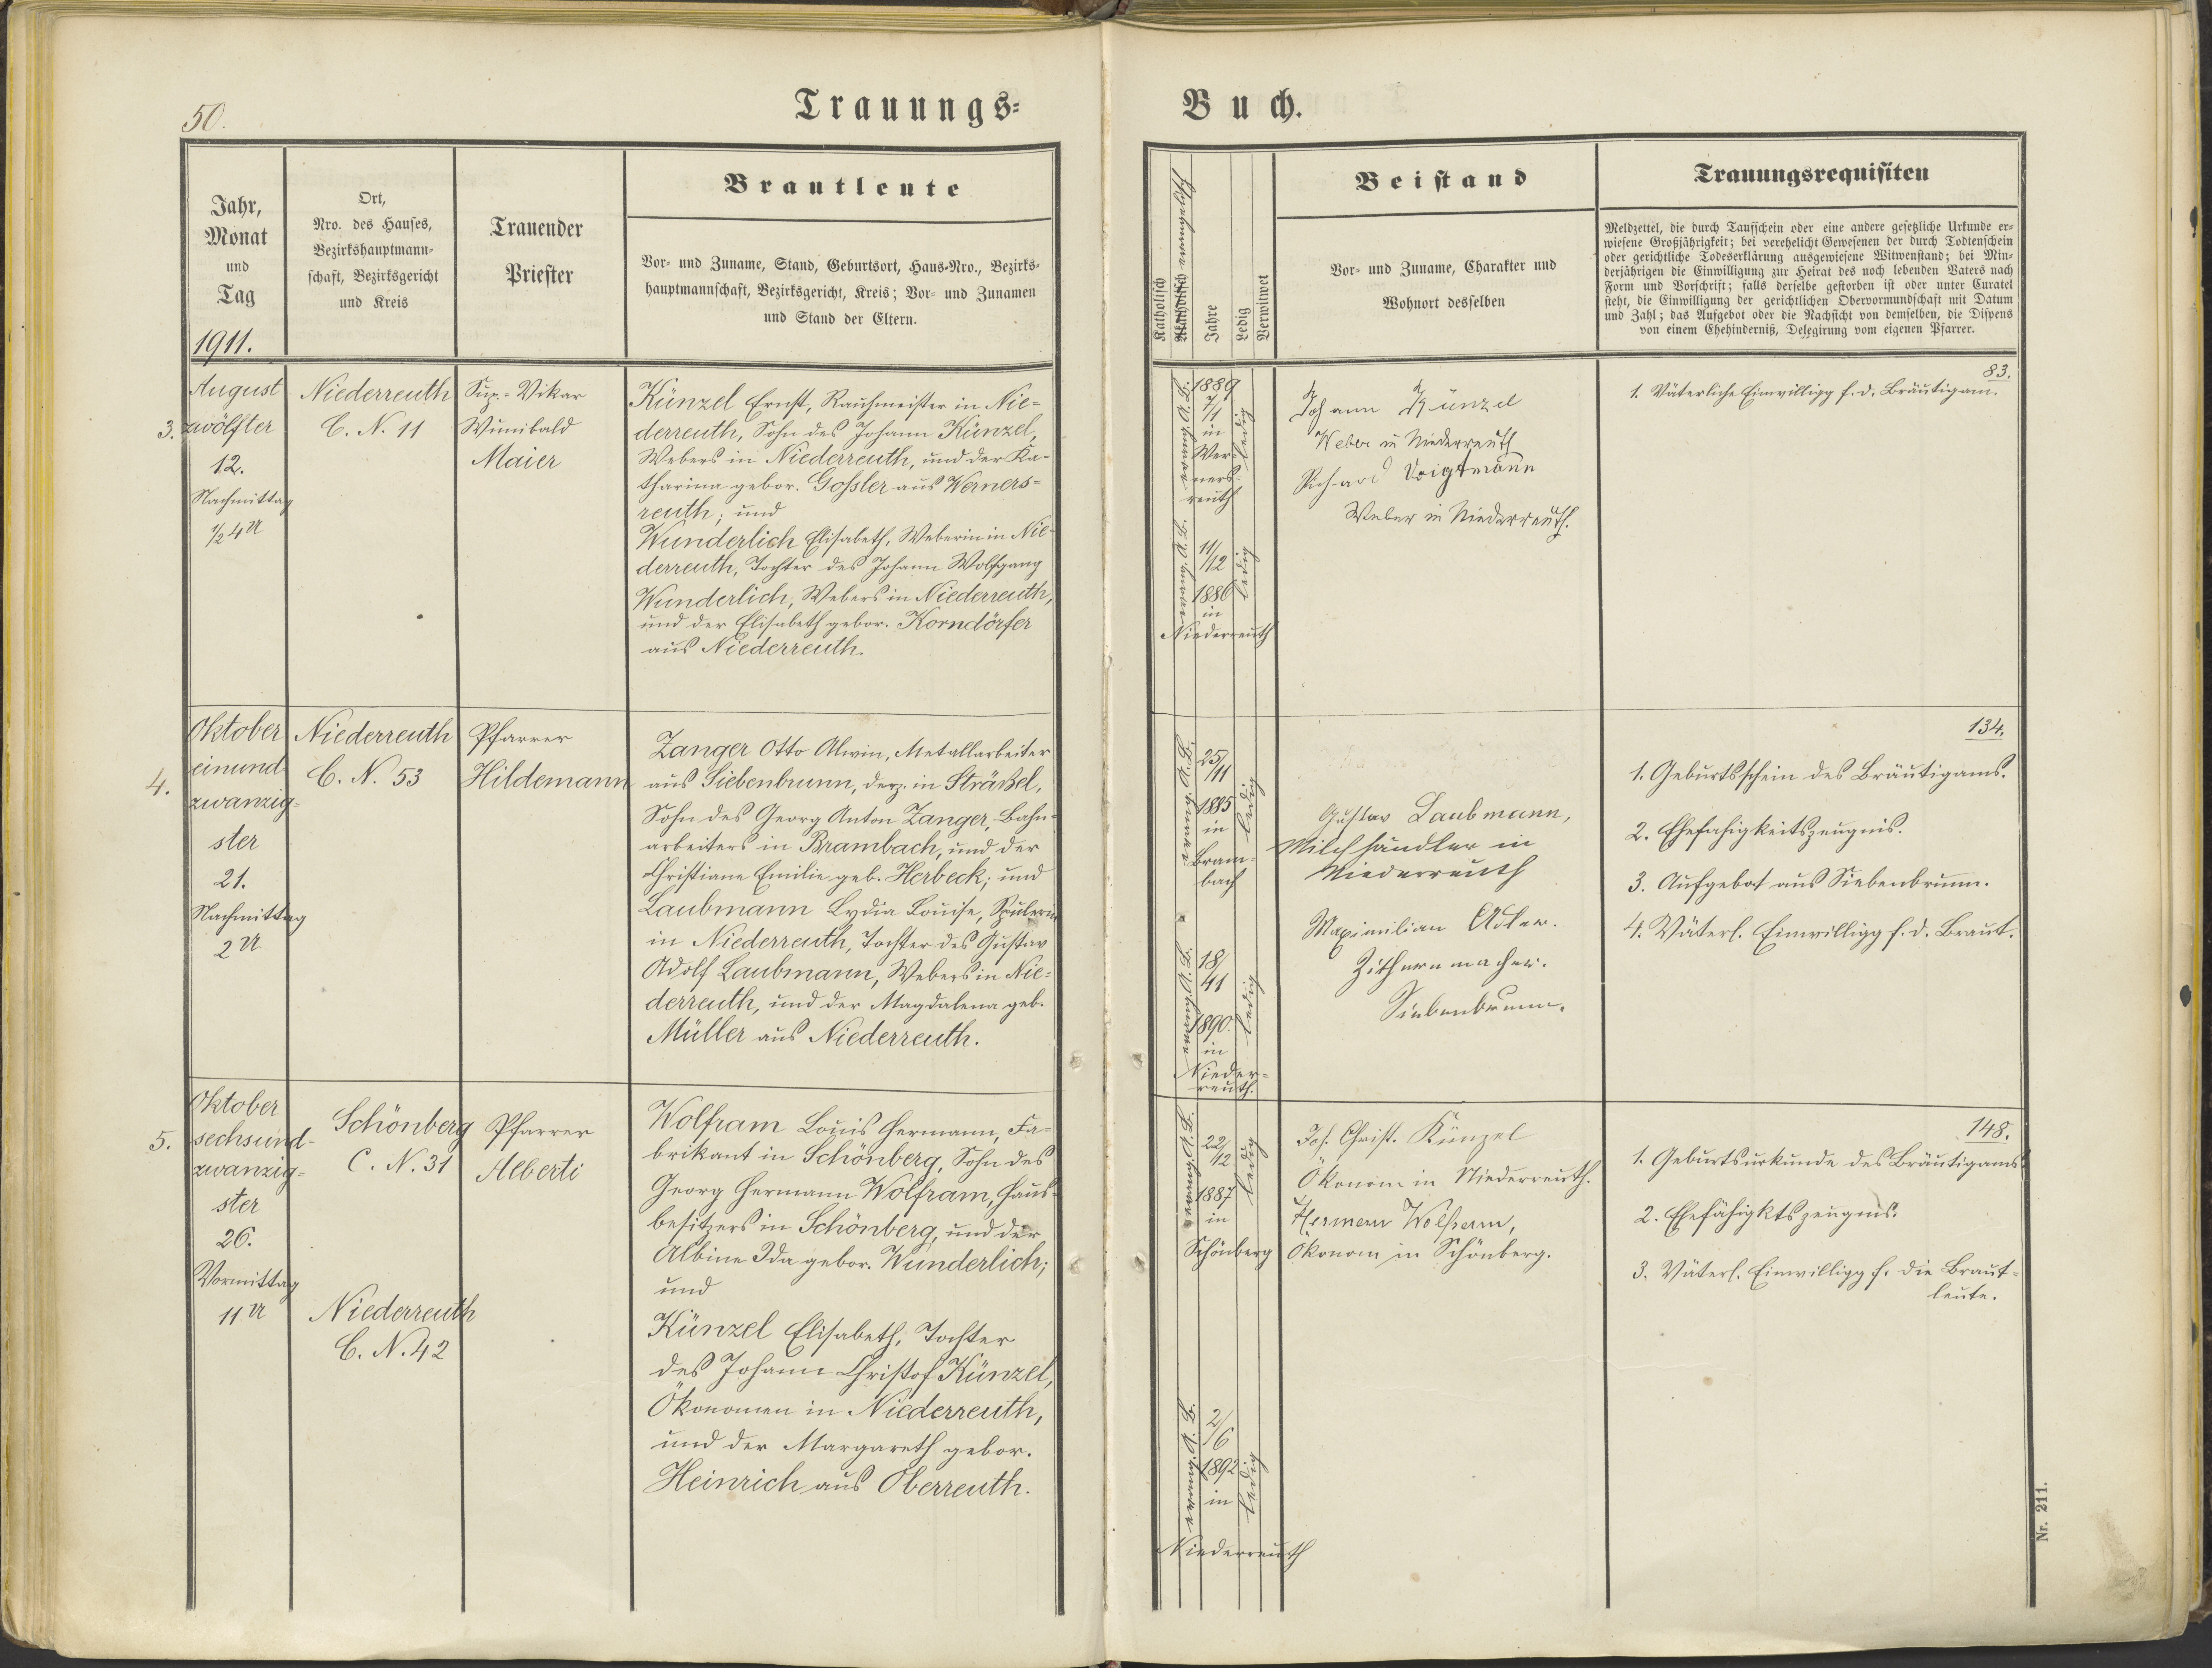 50.
Trauungs-
Jahr,
Monat
und
Tag
1911.
Ort,
Nro. des Hauses,
Bezirkshauptmann-
schaft, Bezirksgericht
und Kreis
Trauender
Priester
Brautleute
Vor- und Zuname, Stand, Geburtsort, Haus-Nro., Bezirks-
hauptmannschaft, Bezirksgericht, Kreis; Vor- und Zunamen
und Stand der Eltern.
3.
August
zwölfter
12.
Nachmittag
1/2 4 U
Niederreuth
C. N. 11
Sup.-Vikar
Wunibald
Maier
Künzel Ernst, Rauhmeister in Nie-
derreuth, Sohn des Johann Künzel,
Webers in Niederreuth, und der Ka-
tharina gebor. Gossler aus Werners-
reuth; und
Wunderlich Elisabeth, Weberin in Nie-
derreuth, Tochter des Johann Wolfgang
Wunderlich, Webers in Niederreuth,
und der Elisabeth gebor. Korndörfer
aus Niederreuth.
4.
Oktober
einund-
zwanzig-
ster
21.
Nachmittag
2 U
Niederreuth
C. N. 53
Pfarrer
Hildemann
Zanger Otto Alwin, Metallarbeiter
aus Siebenbrunn, derz. in Sträßel,
Sohn des Georg Anton Zanger, Bahn-
arbeiters in Brambach, und der
Christiane Emilie geb. Herbeck; und
Laubmann Lydia Louise, Spulerin
in Niederreuth, Tochter des Gustav
Adolf Laubmann, Webers in Nie-
derreuth, und der Magdalena geb.
Müller aus Niederreuth.
5.
Oktober
sechsund-
zwanzig-
ster
26.
Vormittag
11 U
Schönberg
C. N. 31
Niederreuth
C. N. 42
Pfarrer
Alberti
Wolfram Louis Hermann, Fa-
brikant in Schönberg, Sohn des
Georg Hermann Wolfram, Haus-
besitzers in Schönberg, und der
Albine Ida gebor. Wunderlich;
und
Künzel Elisabeth, Tochter
des Johann Christof Künzel,
Ökonomen in Niederreuth,
und der Margareth gebor.
Heinrich aus Oberreuth.
Buch.
Katholisch
evangelisch
Jahre
Ledig
Verwitwet
Beistand
Vor- und Zuname, Charakter und
Wohnort desselben
Trauungsrequisiten
Meldzettel, die durch Taufschein oder eine andere gesetzliche Urkunde er-
wiesene Großjährigkeit; bei verehelicht Gewesenen der durch Todtenschein
oder gerichtliche Todeserklärung ausgewiesene Witwenstand; bei Min-
derjährigen die Einwilligung zur Heirat des noch lebenden Vaters nach
Form und Vorschrift; falls derselbe gestorben ist oder unter Curatel
steht, die Einwilligung der gerichtlichen Obervormundschaft mit Datum
und Zahl; das Aufgebot oder die Nachsicht von demselben, die Dispens
von einem Ehehinderniß, Delegirung vom eigenen Pfarrer.
evang. A. B.
1889
7/1
in
Wer-
ners-
reuth
ledig
evang. A. B.
11/12
1886
in
Niederreuth
ledig
Johann Künzel
Weber in Niederreuth
Richard Voigtmann
Weber in Niederreuth.
83.
1. Väterliche Einwilligg f. d. Bräutigam.
evang. A. B.
25/11
1885
in
Bram-
bach
ledig
evang. A. B.
18/
41
1890.
in
Nieder-
reuth.
ledig
Gustav Laubmann,
Milchhändler in
Niederreuth
Maximilian Adler.
Zithernmacher.
Siebenbrunn.
134.
1. Geburtsschein des Bräutigams.
2. Ehefähigkeitszeugnis.
3. Aufgebot aus Siebenbrunn.
4. Väterl. Einwilligg f. d. Braut.
evang. A. B.
22/12
1887
in
Schönberg
ledig
evang. A. B.
2/6
1892
in
Niederreuth
ledig
Joh. Christ. Künzel
Ökonom in Niederreuth.
Hermann Wolfram,
Ökonom in Schönberg.
148.
1. Geburtsurkunde des Bräutigams.
2. Ehefähigktszeugnis.
3. Väterl. Einwilligg f. die Braut-
leute.
Nr. 211.